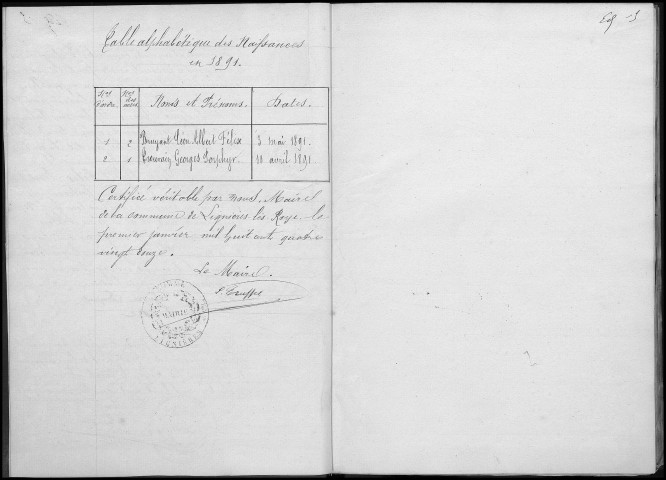 Table alphabétique des Naissances
en 1891.
Nos d'ordre Nos des actes Noms et Prénoms. Dates.
1 2 Bruyant Léon Albert Félix 3 mai 1891.
2 1 Georges Porphyr. 10 avril 1891.
Certifié véritable par nous, Maire
de la commune de Lignières les Roye le
premier janvier mil huit cent quatre
vingt onze.
Le Maire.
MAIRIE
LIGNIÈRES